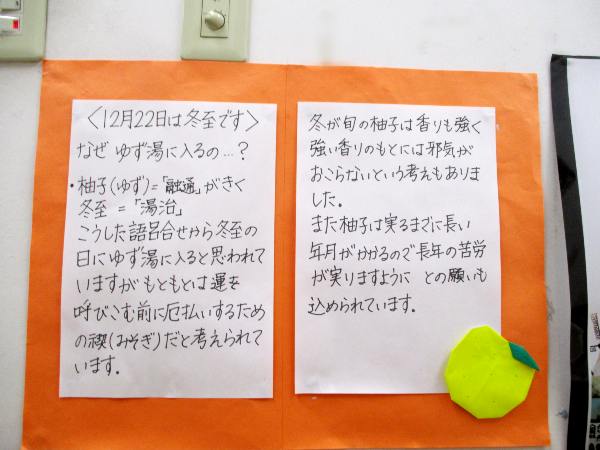 〈12月22日は冬至です〉
なぜ ゆず湯に入るの…?
・柚子(ゆず)=「融通」がきく
冬至 =「湯治」
こうした語呂合せから冬至の
日にゆず湯に入ると思われて
いますがもともとは運を
呼びこむ前に厄払いするため
の禊(みそぎ)だと考えられて
います.
冬が旬の柚子は香りも強く
強い香りのもとには邪気が
おこらないという考えもありま
した.
また柚子は実るまでに長い
年月がかかるので長年の苦労
が実りますように との願いも
込められています.